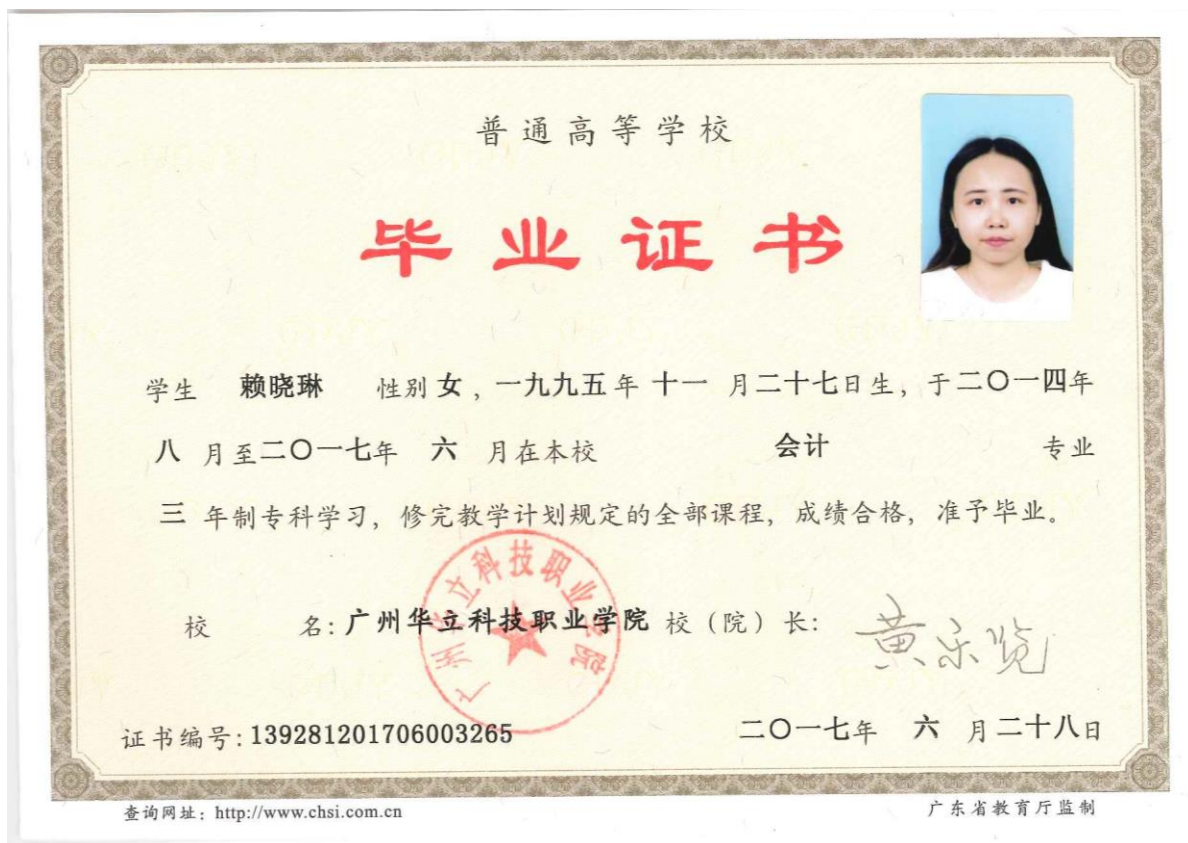 普通高等学校
毕业证书
学生 赖晓琳 性别 女，一九九五年 十一 月二十七日生，于二〇一四年
八 月至二〇一七年 六 月在本校 会计 专业
三 年制专科学习，修完教学计划规定的全部课程，成绩合格，准予毕业。
广州华立科技职业学院
校 名：广州华立科技职业学院 校（院）长：
黄乐览
证书编号：139281201706003265
二〇一七年 六 月二十八日
查询网址：http://www.chsi.com.cn
广东省教育厅监制